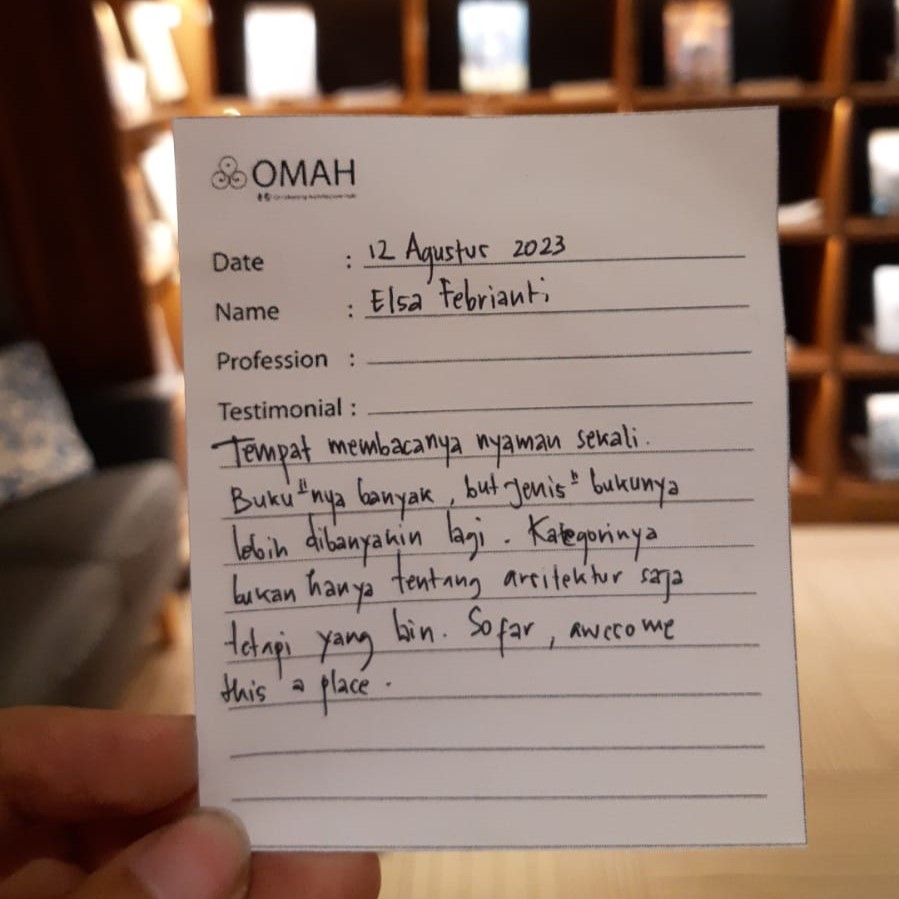 OMAH
Date : 12 Agustus 2023
Name : Elsa Febrianti
Profession :
Testimonial :
Tempat membacanya nyaman sekali.
Buku"nya banyak, but jenis" bukunya
lebih dibanyakin lagi. Kategorinya
bukan hanya tentang arsitektur saja
tetapi yang lain. So far, awesome
this a place.